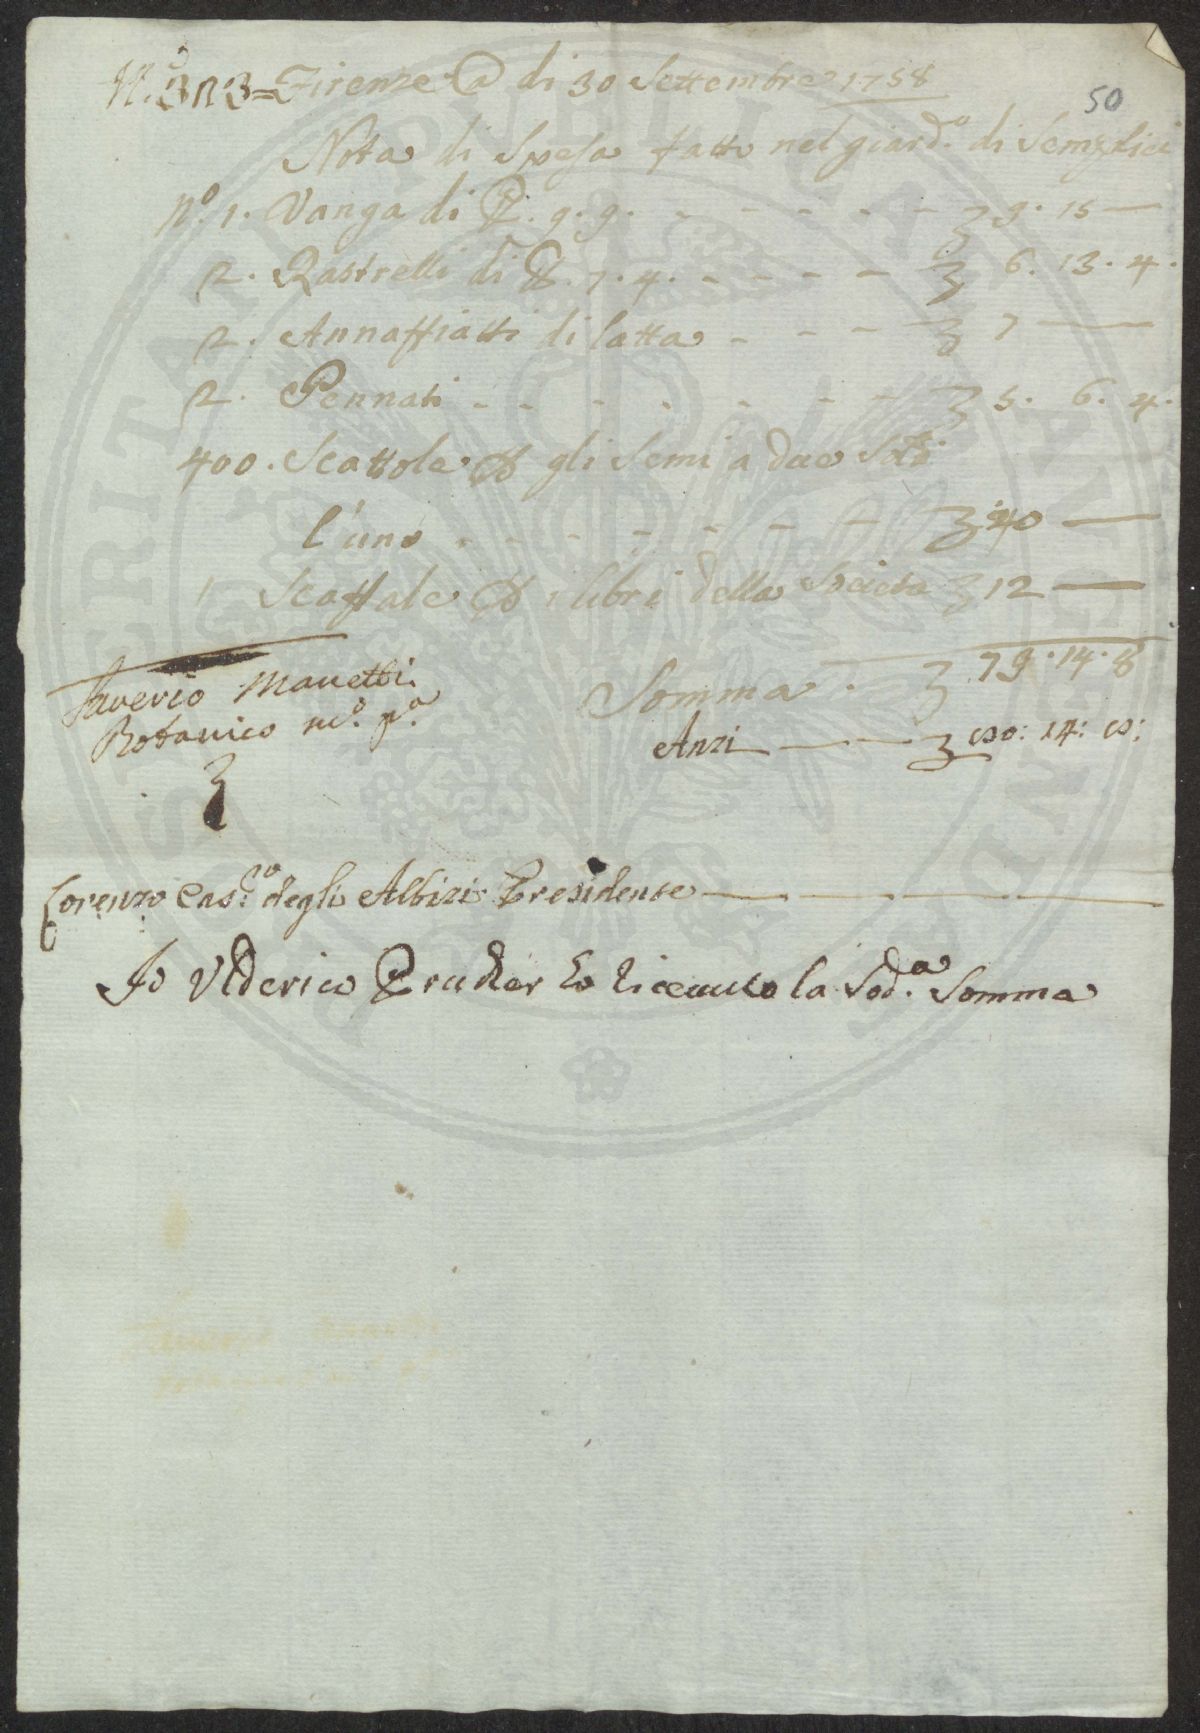 N.º 323 = Firenze a di 30 Settembre 1758
50
Nota di Spesa fatte nel giard.º di Semplici
Nº. 1. Vanga di ℔. 9. 9. - - - - - - 3 9. 15 —
2. Rastrelli di ℔. 7. 4. - - - - 3 6. 13. 4.
2. Annaffiatti di latta - - - 3 7 —
2. Pennati - - - - - - - 3 5. 6. 4.
400. Scattole ℔ gli Semi a due Soldi
l'uno - - - - - - - 3 40 —
1 Scaffale ℔ i libri della Società 3 12 —
Somma . 3 79. 14. 8
Saverio Manetti
Botanico m.º p.ª
Anzi — — 3 80: 14: 8:
Lorenzo Cas.ro degli Albizi Presidente
Io Uderico Prucker ho ricevuto la Sod.ª Somma